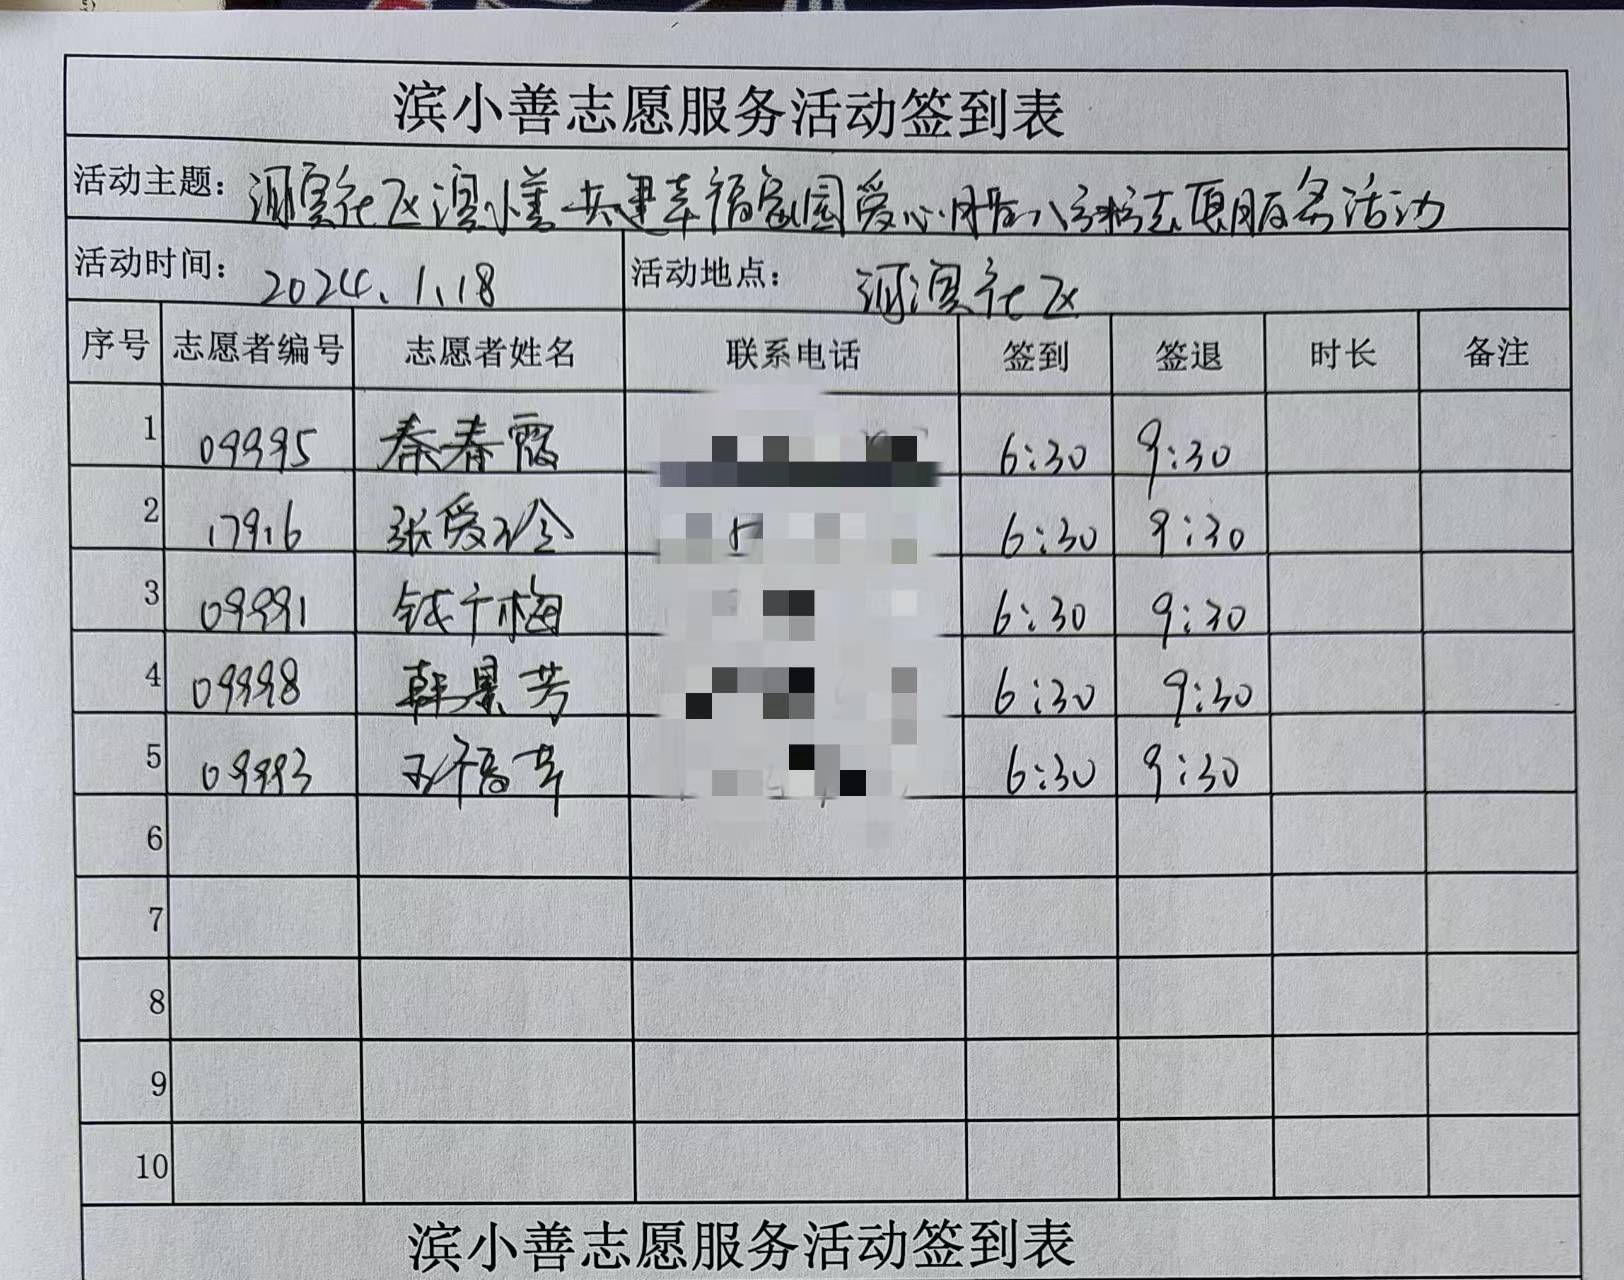 滨小善志愿服务活动签到表
活动主题: 河滨社区滨小善共建幸福家园爱心腊八粥志愿服务活动
活动时间: 2024.1.18 活动地点: 河滨社区
序号 志愿者编号 志愿者姓名 联系电话 签到 签退 时长 备注
1 09995 秦春霞 6:30 9:30
2 17916 张爱玲 6:30 9:30
3 09991 钱千梅 6:30 9:30
4 09998 韩景芳 6:30 9:30
5 09993 王福芹 6:30 9:30
6
7
8
9
10
滨小善志愿服务活动签到表